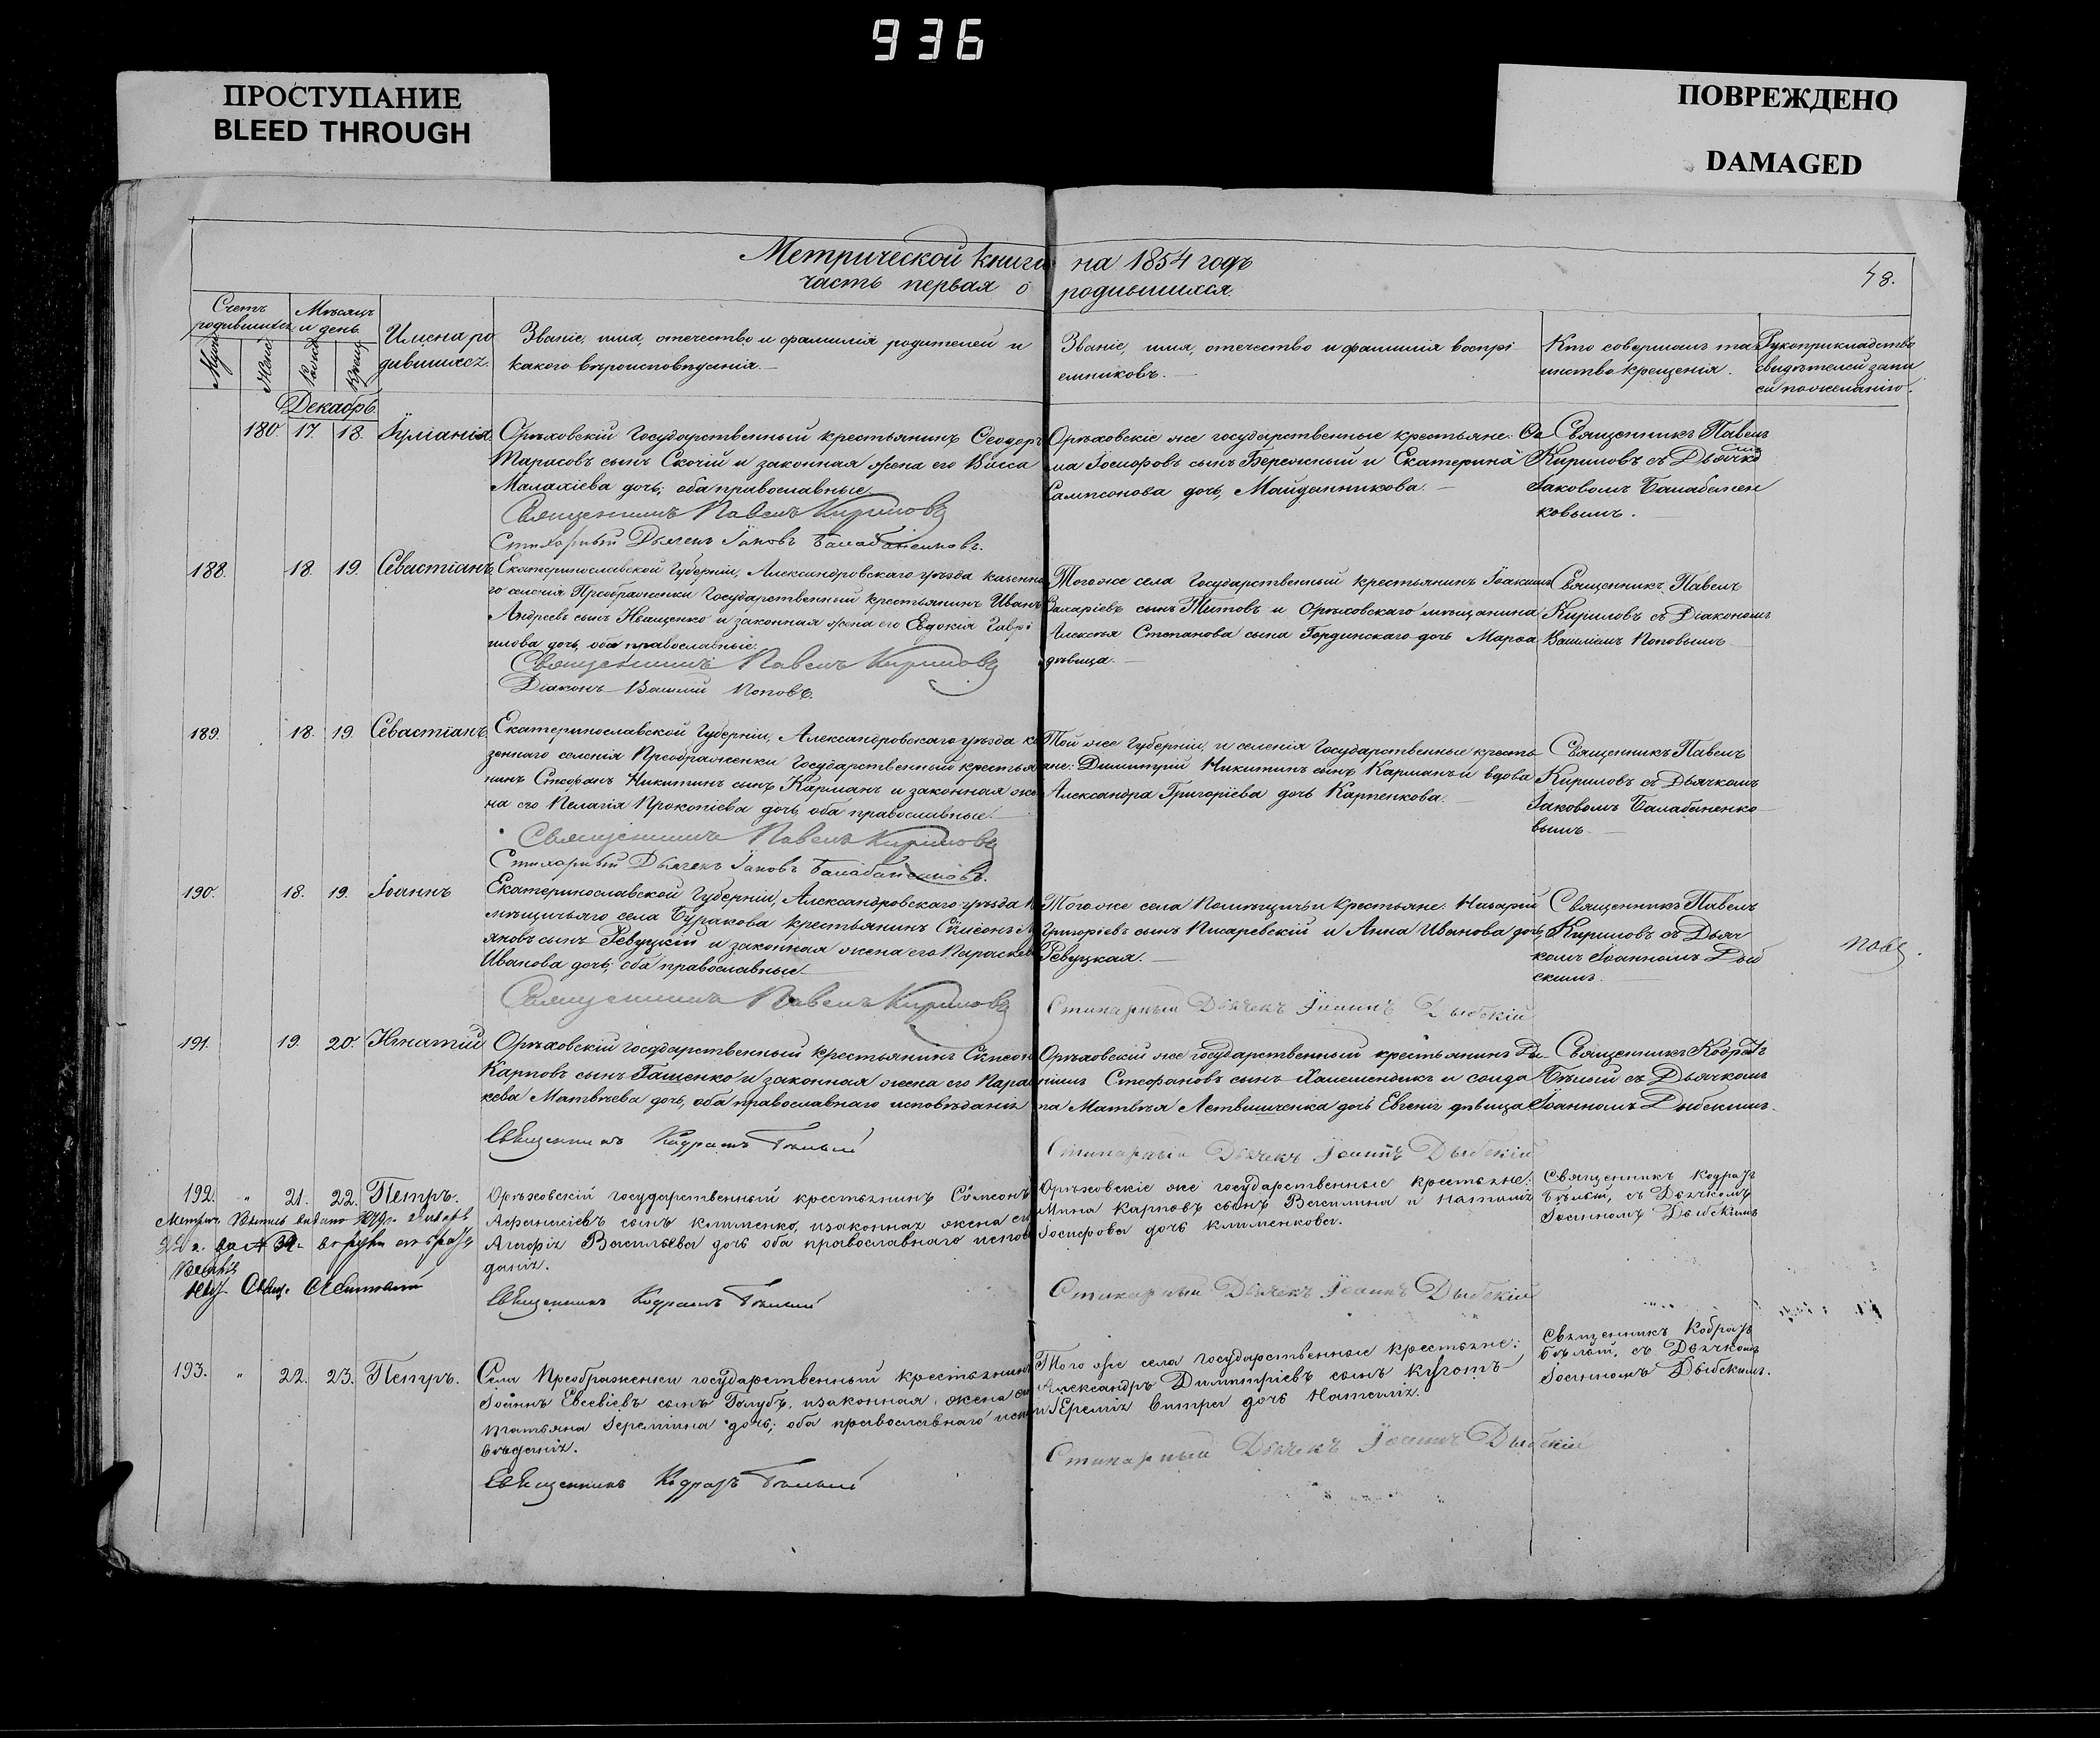 936
ПРОСТУПАНИЕ
BLEED THROUGH
ПОВРЕЖДЕНО
DAMAGED
Метрической книги на 1854 годъ
часть первая о родившихся.
48.
Счетъ родившихся
Мужс
Женс
Мѣсяцъ и день
Рожд
Крещ
Имена ро
дившихся.
Званіе, имя, отечество и фамилія родителей и
какого вѣроисповѣданія.
Званіе, имя, отечество и фамилія воспрі
емниковъ.
Кто совершалъ та
инство крещенія.
Рукоприкладство
свидѣтелей запи
си по желанію.
Декабрь
180. 17. 18. Іуліанія
Орѣховскій Государственный крестьянинъ Ѳеодоръ
Тарасовъ сынъ Скочій и законная жена его Васса
Малахіева дочь; оба православные
Священникъ Павелъ Кириловъ
Стихарный Дьячекъ Іаковъ Балабаненковъ.
Орѣховскіе же государственные крестьяне: Ѳо
ма Іосифовъ сынъ Бережный и Екатерина
Сампсонова дочь, Майданникова.
Священникъ Павелъ
Кириловъ съ Дьячко
Іаковомъ Балабанен
ковымъ.
188. 18. 19. Севастіанъ
Екатеринославской Губерніи, Александровскаго уѣзда казенна
го селенія Преображенки Государственный крестьянинъ Иванъ
Андреевъ сынъ Иващенко и законная жена его Евдокія Гаврі
илова дочь, оба православные.
Священникъ Павелъ Кириловъ
Діаконъ Василій Поповъ.
Того же села Государственный крестьянинъ Іоакимъ
Захаріевъ сынъ Титовъ и Орѣховскаго мѣщанина
Алексѣя Степанова сына Гординскаго дочь Марѳа
дѣвица.
Священникъ Павелъ
Кириловъ съ Діакономъ
Василіемъ Поповымъ
189. 18. 19. Севастіанъ
Екатеринославской Губерніи, Александровскаго уѣзда ка
зеннаго селенія Преображенки Государственный крестья
нинъ Стефанъ Никитинъ сынъ Карманъ и законная же
на его Пелагія Прокопіева дочь, оба православные.
Священникъ Павелъ Кириловъ
Стихарный Дьячекъ Іаковъ Балабаненковъ.
Той же Губерніи, и селенія Государственные кресть
яне: Димитрій Никитинъ сынъ Карманъ и вдова
Александра Григоріева дочь Карпенкова.
Священникъ Павелъ
Кириловъ съ Дьячкомъ
Іаковомъ Балабаненко
вымъ.
190. 18. 19. Іоаннъ
Екатеринославской Губерніи, Александровскаго уѣзда По
мѣщичьяго села Бурякова крестьянинъ Сѵмеонъ
яновъ сынъ Ревуцкій и законная жена его Параскева
Иванова дочь, оба православные
Священникъ Павелъ Кириловъ
Того же села Помѣщичьи крестьяне: Назарій
Григоріевъ сынъ Писаревскій и Анна Иванова дочь,
Ревуцкая.
Стихарный Дьячекъ Іоаннъ Дыбскій
Священникъ Павелъ
Кириловъ съ Дьяч
комъ Іоанномъ Дыб
скимъ.
191. 19. 20. Игнатій
Орѣховскій государственный крестьянинъ Сѵмеонъ
Карповъ сынъ Гащенко и законная жена его Парас
кева Матвѣева дочь, оба православнаго исповѣданія
Священникъ Кодратъ Бѣлый
Орѣховскій же государственный крестьянинъ Да
ніилъ Стефановъ сынъ и солда
та Матвѣя дочь Евгенія дѣвица
Стихарный Дьячекъ Іоаннъ Дыбскій
Священникъ Кодратъ
Бѣлый съ Дьячкомъ
Іоанномъ Дыбскимъ.
192. " 21. 22. Петръ.
Орѣховскій государственный крестьянинъ Сѵмеонъ
сынъ Клименко, и законная жена его
Агафія Васильева дочь оба православнаго исповѣ
данія.
Священникъ Кодратъ Бѣлый
Орѣховскіе же государственные крестьяне:
Мина Карповъ сынъ Василина и Наталія
Іосифова дочь Клименкова.
Стихарный Дьячекъ Іоаннъ Дыбскій
Священникъ Кодратъ
Бѣлый, съ Дьячкомъ
Іоанномъ Дыбскимъ
193. " 22. 23. Петръ.
Села Преображенки государственный крестьянинъ
Іоаннъ Евсевіевъ сынъ Голубъ, и законная жена его
Татьяна Іереміина дочь; оба православнаго испо
вѣданія.
Священникъ Кодратъ Бѣлый
Того же села государственные крестьяне:
Александръ Димитріевъ сынъ
и Іеремія дочь Наталія.
Стихарный Дьячекъ Іоаннъ Дыбскій
Священникъ Кодратъ
Бѣлый, съ Дьячкомъ
Іоанномъ Дыбскимъ.